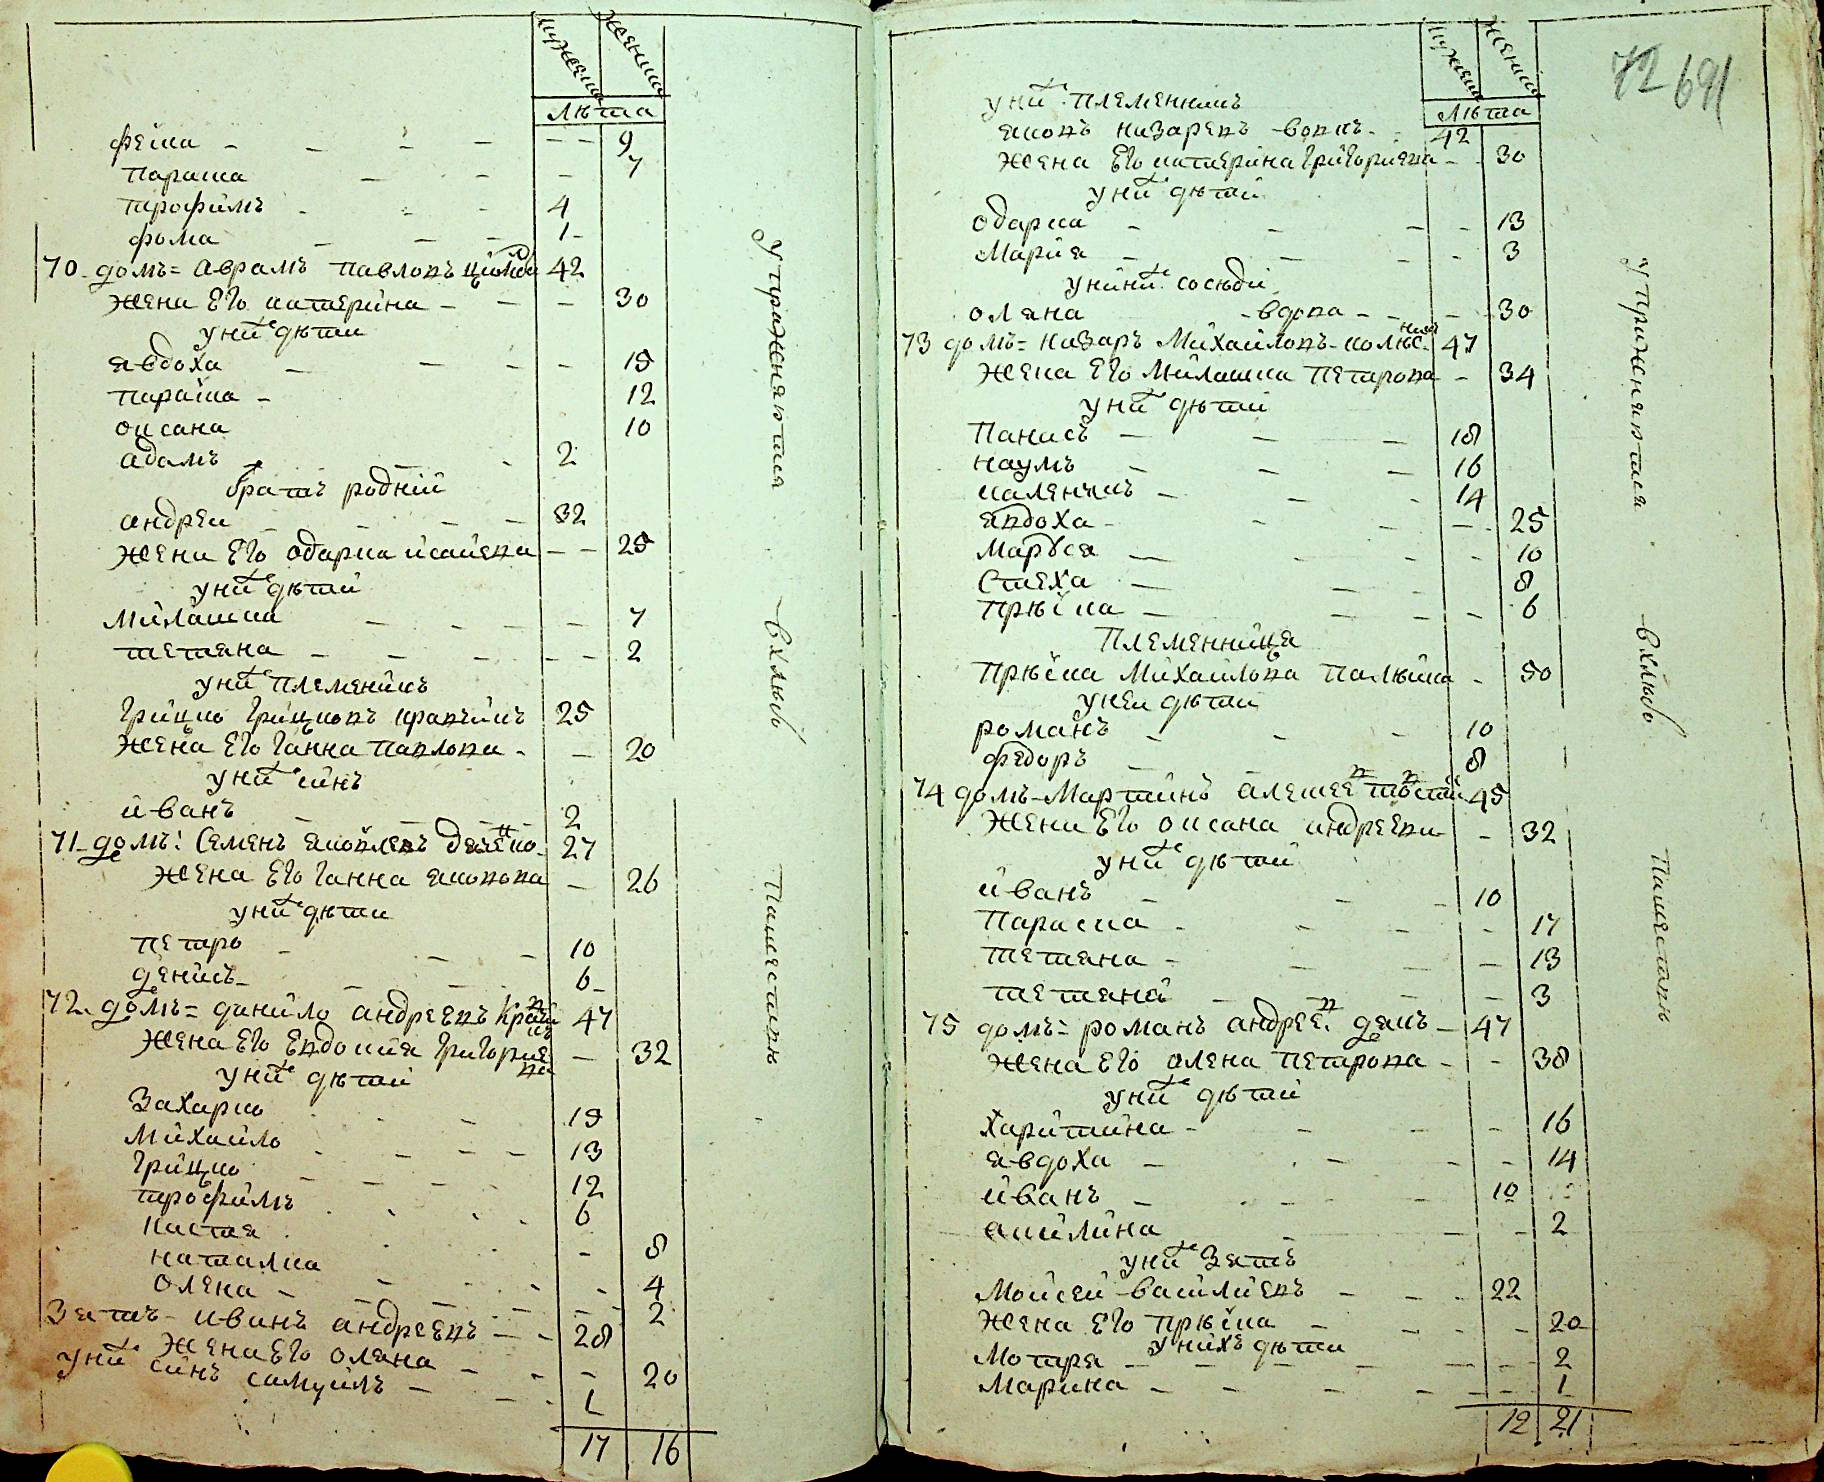 мужеска женска
лѣта
феска - - - - - 9
параска - - - 7
трофимъ - - - 4
фома - - - 1
70 домъ= аврамъ павловъ 42
жена его катерина - - - 30
у них дѣти
явдоха - - - 15
параска - 12
оксана 10
адамъ - - 2
братъ родній
андреи - - - 32
жена его одарка исаиева - - 25
у них дѣтй
милашка - - - 7
тетяна - - - 2
у них племеникъ
грицко грицковъ кравчикъ 25
жена его ганна павлова - - 20
у них синъ
иванъ - - - 2
71 домъ: семенъ яковлевъ 27
жена его ганна яковова - 26
у них дѣти
петро - - - 10
денисъ - - - 6
72 домъ= данило андреевъ 47
жена его евдокия григориева - 32
у них дѣтй
захарко - - 15
михаило - - - 13
грицко - - - 12
трофимъ - - 6
настя - 8
наталка - - - 4
олена - - - 2
зять - иванъ андреевъ - - 28
жена его олена - - - 20
у них синъ самуилъ - - 1
17 16
упражняются
в хлѣбо
пашествѣ
72 691
мужеска женска
лѣта
у них племенникъ
яковъ назаревъ - вовкъ - 42
жена его катерина григориева - - 30
у них дѣтй
одарка - - - 13
мария - - - 3
у них сосѣди
оляна - вдова - - 30
73 домъ= назаръ михаиловъ 47
жена его милашка петрова - 34
у них дѣтй
панасъ - - - 18
наумъ - - - 16
каленикъ - - - 14
явдоха - - - 25
маруся - - - 10
стеха - - - 8
прѣска - - - 6
племенница
прѣска михаилова - 50
у неи дѣтй
романъ - - - 10
федоръ - - 8
74 домъ - мартинъ алексеев 45
жена его оксана андреева - - 32
у них дѣтй
иванъ - - - 10
параска - - - 17
тетяна - - - 13
тетяна - - - 3
75 домъ= романъ андреев дякъ - 47
жена его олена петрова - - 38
у них дѣтй
харитина - - - 16
явдоха - - - 14
иванъ - - - 10
акилина - - 2
у них зять
моисей василиевъ - - - 22
жена его прѣска - - - 20
у нихъ дѣти
мотря - - - 2
марина - - - 1
12 21
упражняются
в хлѣбо
пашествѣ